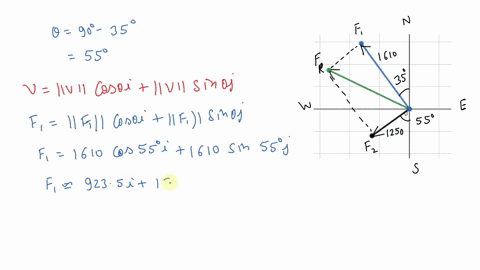 θ = 90° - 35°
= 55°
V = ||V|| cosθ i + ||V|| sinθ j
F₁ = ||F₁|| cosθ i + ||F₁|| sinθ j
F₁ = 1610 cos 55° i + 1610 sin 55° j
F₁ ≈ 923.5 i + 1
N
F₁
1610
FR
35°
W
E
1250
55°
F₂
S